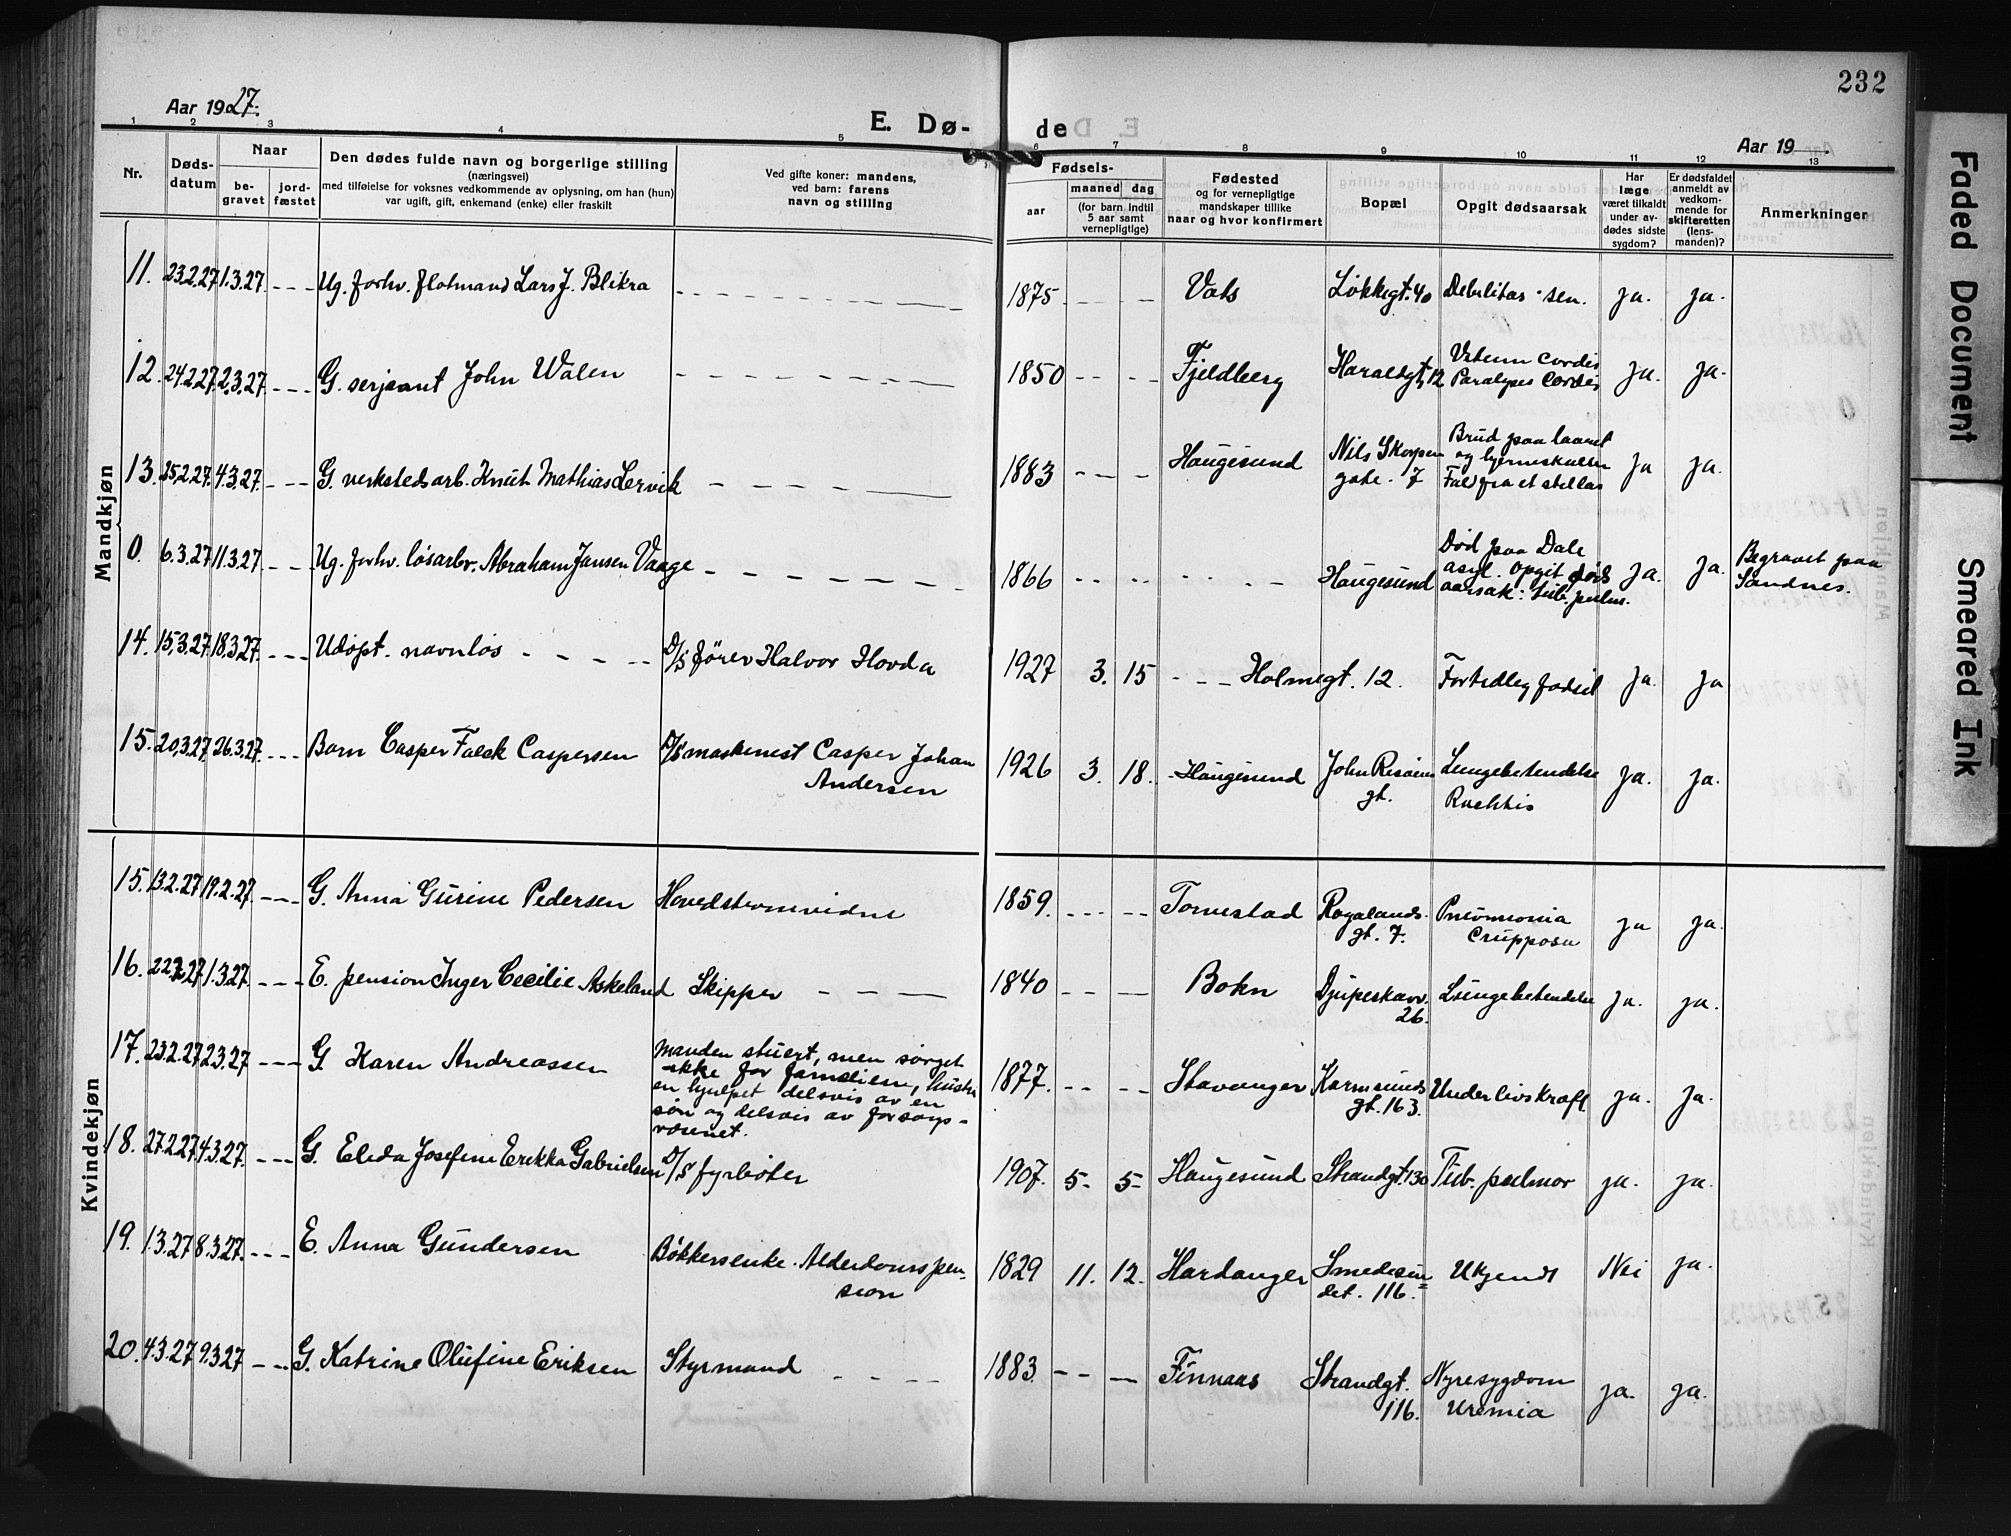 232
Aar 1927.
E. Dø-
de
Aar 19
1 2 3 4 5 6 7 8 9 10 11 12 13
Nr.
Døds-
datum
Naar
be-
gravet
jord-
fæstet
Den dødes fulde navn og borgerlige stilling
(næringsvei)
med tilføielse for voksnes vedkommende av oplysning, om han (hun)
var ugift, gift, enkemand (enke) eller fraskilt
Ved gifte koner: mandens,
ved barn: farens
navn og stilling
Fødsels-
aar
maaned dag
(for barn indtil
5 aar samt
vernepligtige)
Fødested
og for vernepligtige
mandskaper tillike
naar og hvor konfirmert
Bopæl
Opgit dødsaarsak
Har
læge
været tilkaldt
under av-
dødes sidste
sygdom?
Er dødsfaldet
anmeldt av
vedkom-
mende for
skifteretten
(lens-
manden)?
Anmerkninger
Mandkjøn
11. 23.2.27 1.3.27. Ug. forhv. flotmand Lars J. Blikra 1875 Vats Løkkegt. 40 Debilitas sen. ja. ja.
12. 24.2.27. 2.3.27. G. serjeant John Walen 1850 Fjeldberg Haraldsgt. 12 Vitium cordis
Paralyses Cordis ja. ja.
13. 25.2.27. 4.3.27. G. verkstedsarb. Knut Mathias Lervik 1883 Haugesund Nils Skorpen
gate. 7 Brud paa laaret
og hjerneskallen
Fald fra et stillas ja ja.
0 6.3.27. 11.3.27 Ug. forhv. løsarbr. Abraham Jansen Vaage 1866 Haugesund Død paa Dale
asyl. opgit døds
aarsak: tub. pulm. ja. ja. Begravet paa
Sandnes.
14. 15.3.27. 18.3.27. Udøpt. navnløs D/S fører Halvor Hovda 1927 3. 15 Holmegt. 12. Fortidleg fødsel ja. ja
15. 20.3.27. 26.3.27. Barn Casper Falck Caspersen D/S maskinist Casper Johan
Andersen 1926 3. 18. Haugesund John Risøens
gt. Lungebetendelse
Rachitis ja. ja.
Kvindekjøn
15. 13.2.27 19.2.27. G. Anna Gurine Pedersen Hovedstromvidne 1859. Torvestad Rogalands-
gt. 7. Pneumonia
Crupposa ja ja.
16. 22.2.27 1.3.27. E. pension Inger Cecilie Askeland Skipper 1840 Bokn Djupeskarv.
26. Lungebetendelse ja. ja.
17. 23.2.27 2.3.27 G Karen Andreassen Manden stuert, men sørget
ikke for familien, hustru
en hjulpet delsvis av en
søn og delsvis av forsorgs-
væsenet. 1877. Stavanger Karmsunds
gt. 163. Underlivskræft ja. ja.
18. 27.2.27 4.3.27. G. Elida Josefine Erikka Gabrielsen D/S fyrbøter 1907. 5. 5. Haugesund Strandgt. 130 Tub. pulmor ja. ja.
19. 1.3.27 8.3.27. E. Anna Gundersen Bøkkersenke. Alderdomspen-
sion 1829 11. 12. Hardanger Smedesun-
det. 116. Ukjendt Nei ja.
20. 4.3.27 9.3.27 G. Katrine Olufine Eriksen Styrmand 1883. Finnaas Strandgt.
116. Nyresygdom
Uremia ja. ja.
Faded Document
Smeared Ink